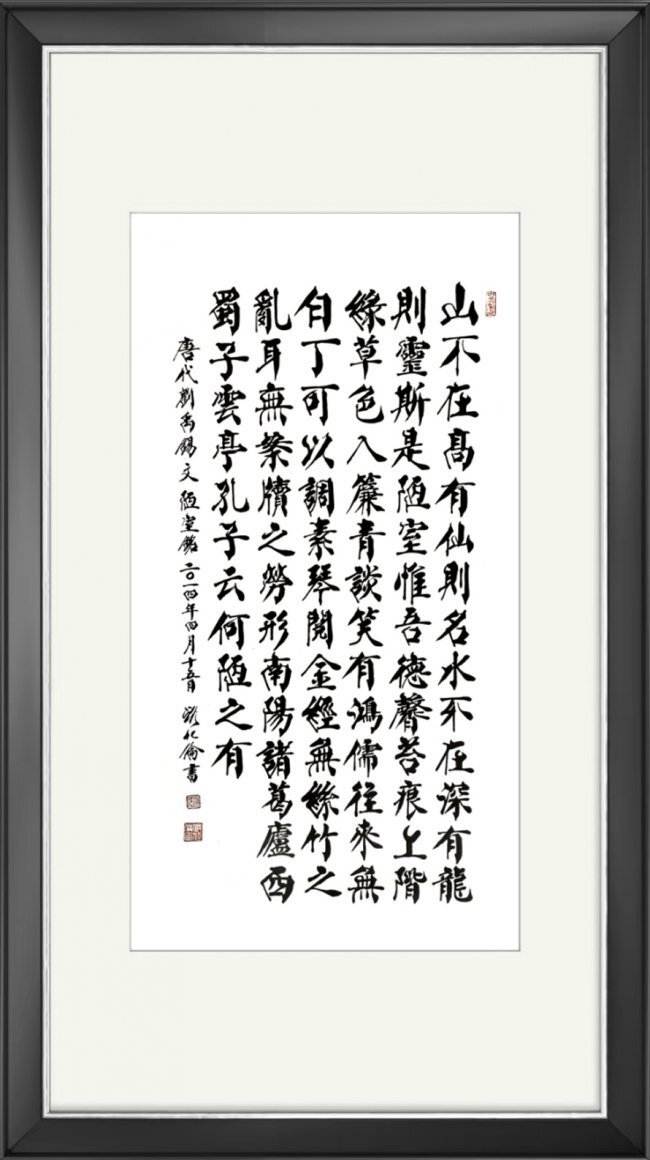 山不在髙有仙則名水不在深有龍
則靈斯是陋室惟吾德馨苔痕上階
綠草色入簾青談笑有鴻儒往來無
白丁可以調素琴閱金經無絲竹之
亂耳無案牘之勞形南陽諸葛廬西
蜀子雲亭孔子云何陋之有
唐代劉禹錫文陋室銘二〇一四年四月十五日 化倫書